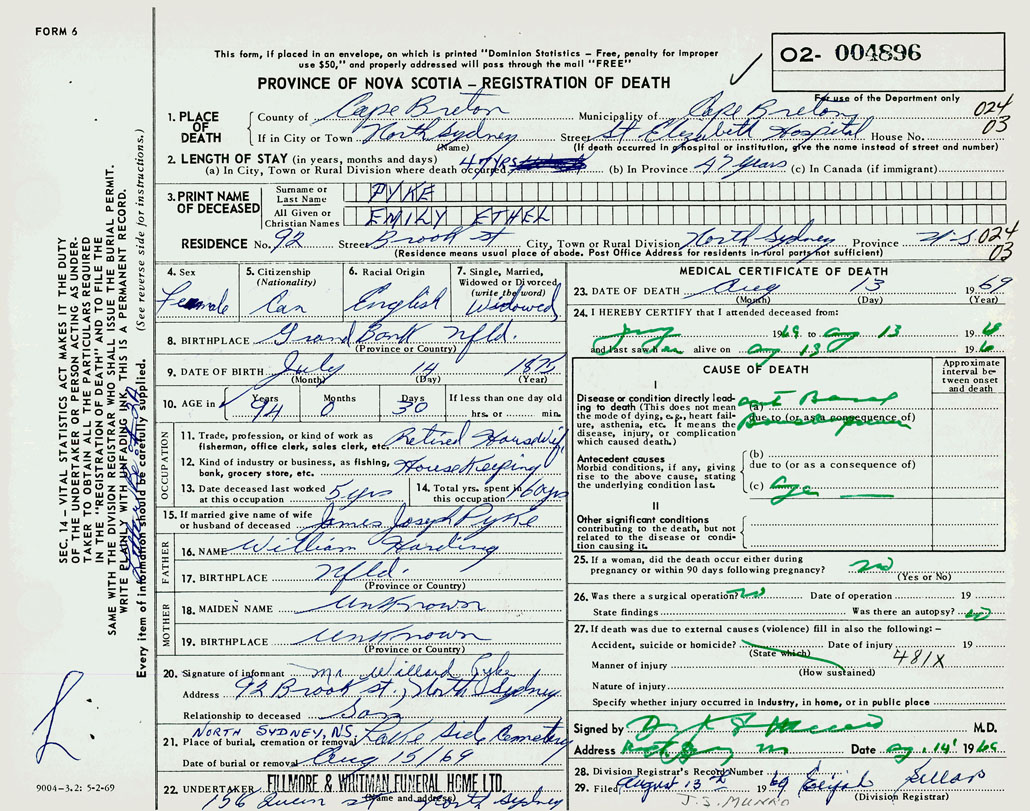 FORM 6
This form, if placed in an envelope, on which is printed "Dominion Statistics – Free, penalty for improper
use $50," and properly addressed will pass through the mail "FREE"
PROVINCE OF NOVA SCOTIA – REGISTRATION OF DEATH
O2- 004896
For use of the Department only
024
03
1. PLACE OF DEATH
County of Cape Breton Municipality of Cape Breton
If in City or Town North Sydney Street St. Elizabeth Hospital House No.
(Name) (If death occurred in a hospital or institution, give the name instead of street and number)
2. LENGTH OF STAY (in years, months and days)
(a) In City, Town or Rural Division where death occurred 47 yrs (b) In Province 47 years (c) In Canada (if immigrant)
3. PRINT NAME OF DECEASED
Surname or Last Name PYKE
All Given or Christian Names EMILY ETHEL
RESIDENCE No. 92 Street Brook St City, Town or Rural Division North Sydney Province N-S 024
03
(Residence means usual place of abode. Post Office Address for residents in rural parts not sufficient)
4. Sex Female
5. Citizenship (Nationality) Can
6. Racial Origin English
7. Single, Married, Widowed or Divorced (write the word) Widowed
8. BIRTHPLACE Grand Bank Nfld.
(Province or Country)
9. DATE OF BIRTH July 14 1875
(Month) (Day) (Year)
10. AGE in Years 94 Months 0 Days 30 If less than one day old
hrs. or min.
OCCUPATION
11. Trade, profession, or kind of work as fisherman, office clerk, sales clerk, etc. Retired Housewife
12. Kind of industry or business, as fishing, bank, grocery store, etc. House Keeping
13. Date deceased last worked at this occupation 5 yrs 14. Total yrs. spent in this occupation 60 yrs
15. If married give name of wife or husband of deceased James Joseph Pyke
FATHER
16. NAME William Harding
17. BIRTHPLACE Nfld.
(Province or Country)
MOTHER
18. MAIDEN NAME Unknown
19. BIRTHPLACE Unknown
(Province or Country)
20. Signature of informant Mr. Willard Pyke
Address 92 Brook st., North Sydney
Relationship to deceased Son
NORTH SYDNEY, NS.
21. Place of burial, cremation or removal Lake Side Cemetery
Date of burial or removal Aug 15/69
22. UNDERTAKER FILLMORE & WHITMAN FUNERAL HOME LTD.
(Name and address)
156 Queen st North Sydney
MEDICAL CERTIFICATE OF DEATH
23. DATE OF DEATH Aug 13 1969
(Month) (Day) (Year)
24. I HEREBY CERTIFY that I attended deceased from:
1969 to Aug 13 19
and last saw her alive on Aug 13 19
CAUSE OF DEATH
Approximate interval between onset and death
I
Disease or condition directly leading to death (This does not mean the mode of dying, e.g., heart failure, asthenia, etc. It means the disease, injury, or complication which caused death.)
(a)
due to (or as a consequence of)
Antecedent causes
Morbid conditions, if any, giving rise to the above cause, stating the underlying condition last.
(b)
due to (or as a consequence of)
(c) Age
II
Other significant conditions contributing to the death, but not related to the disease or condition causing it.
25. If a woman, did the death occur either during pregnancy or within 90 days following pregnancy? no
(Yes or No)
26. Was there a surgical operation? no Date of operation 19
State findings Was there an autopsy? no
27. If death was due to external causes (violence) fill in also the following: –
Accident, suicide or homicide? Date of injury 19
(State which)
481X
Manner of injury
(How sustained)
Nature of injury
Specify whether injury occurred in industry, in home, or in public place
Signed by M.D.
Address Date Aug 14 1969
28. Division Registrar's Record Number 22
29. Filed August 13 1969 Elijah
(Division Registrar)
J.S. MUNRO
SEC. 14 – VITAL STATISTICS ACT MAKES IT THE DUTY
OF THE UNDERTAKER OR PERSON ACTING AS UNDER-
TAKER TO OBTAIN ALL THE PARTICULARS REQUIRED
IN THE "REGISTRATION OF DEATH" AND TO FILE THE
SAME WITH THE DIVISION REGISTRAR WHO SHALL ISSUE THE BURIAL PERMIT.
WRITE PLAINLY WITH UNFADING INK. THIS IS A PERMANENT RECORD.
Every item of information should be carefully supplied. (See reverse side for instructions.)
9004-3.2: 5-2-69